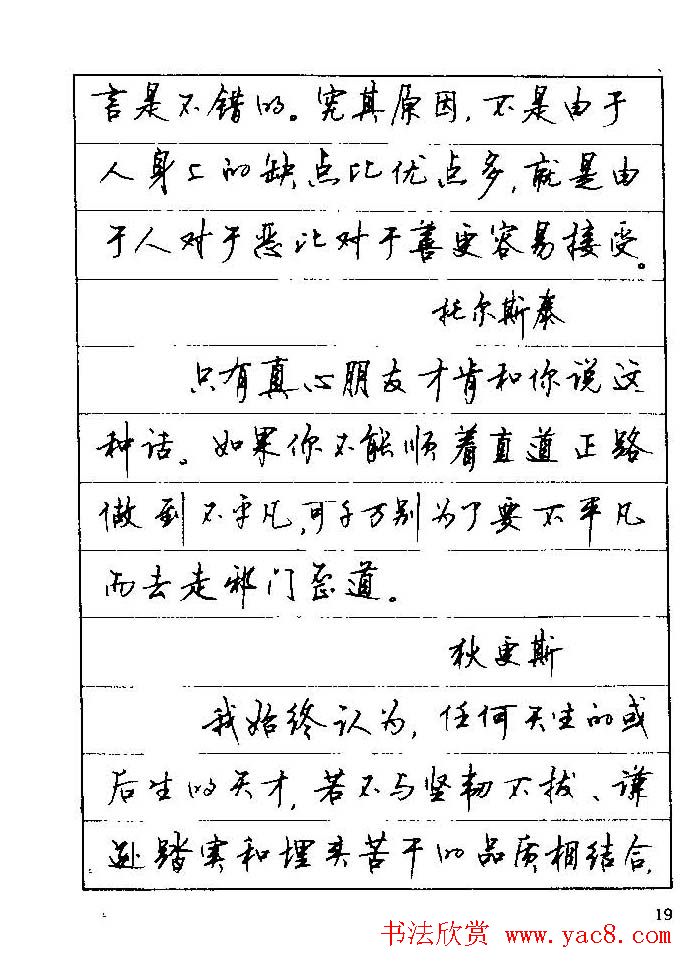 言是不错的。究其原因，不是由于
人身上的缺点比优点多，就是由
于人对于恶比对于善更容易接受。
托尔斯泰
只有真心朋友才肯和你说这
种话。如果你不能顺着直道正路
做到不平凡，可千万别为了要不平凡
而去走邪门歪道。
狄更斯
我始终认为，任何天生的或
后生的天才，若不与坚韧不拔、谦
逊踏实和埋头苦干的品质相结合，
19
书法欣赏 www.yac8.com